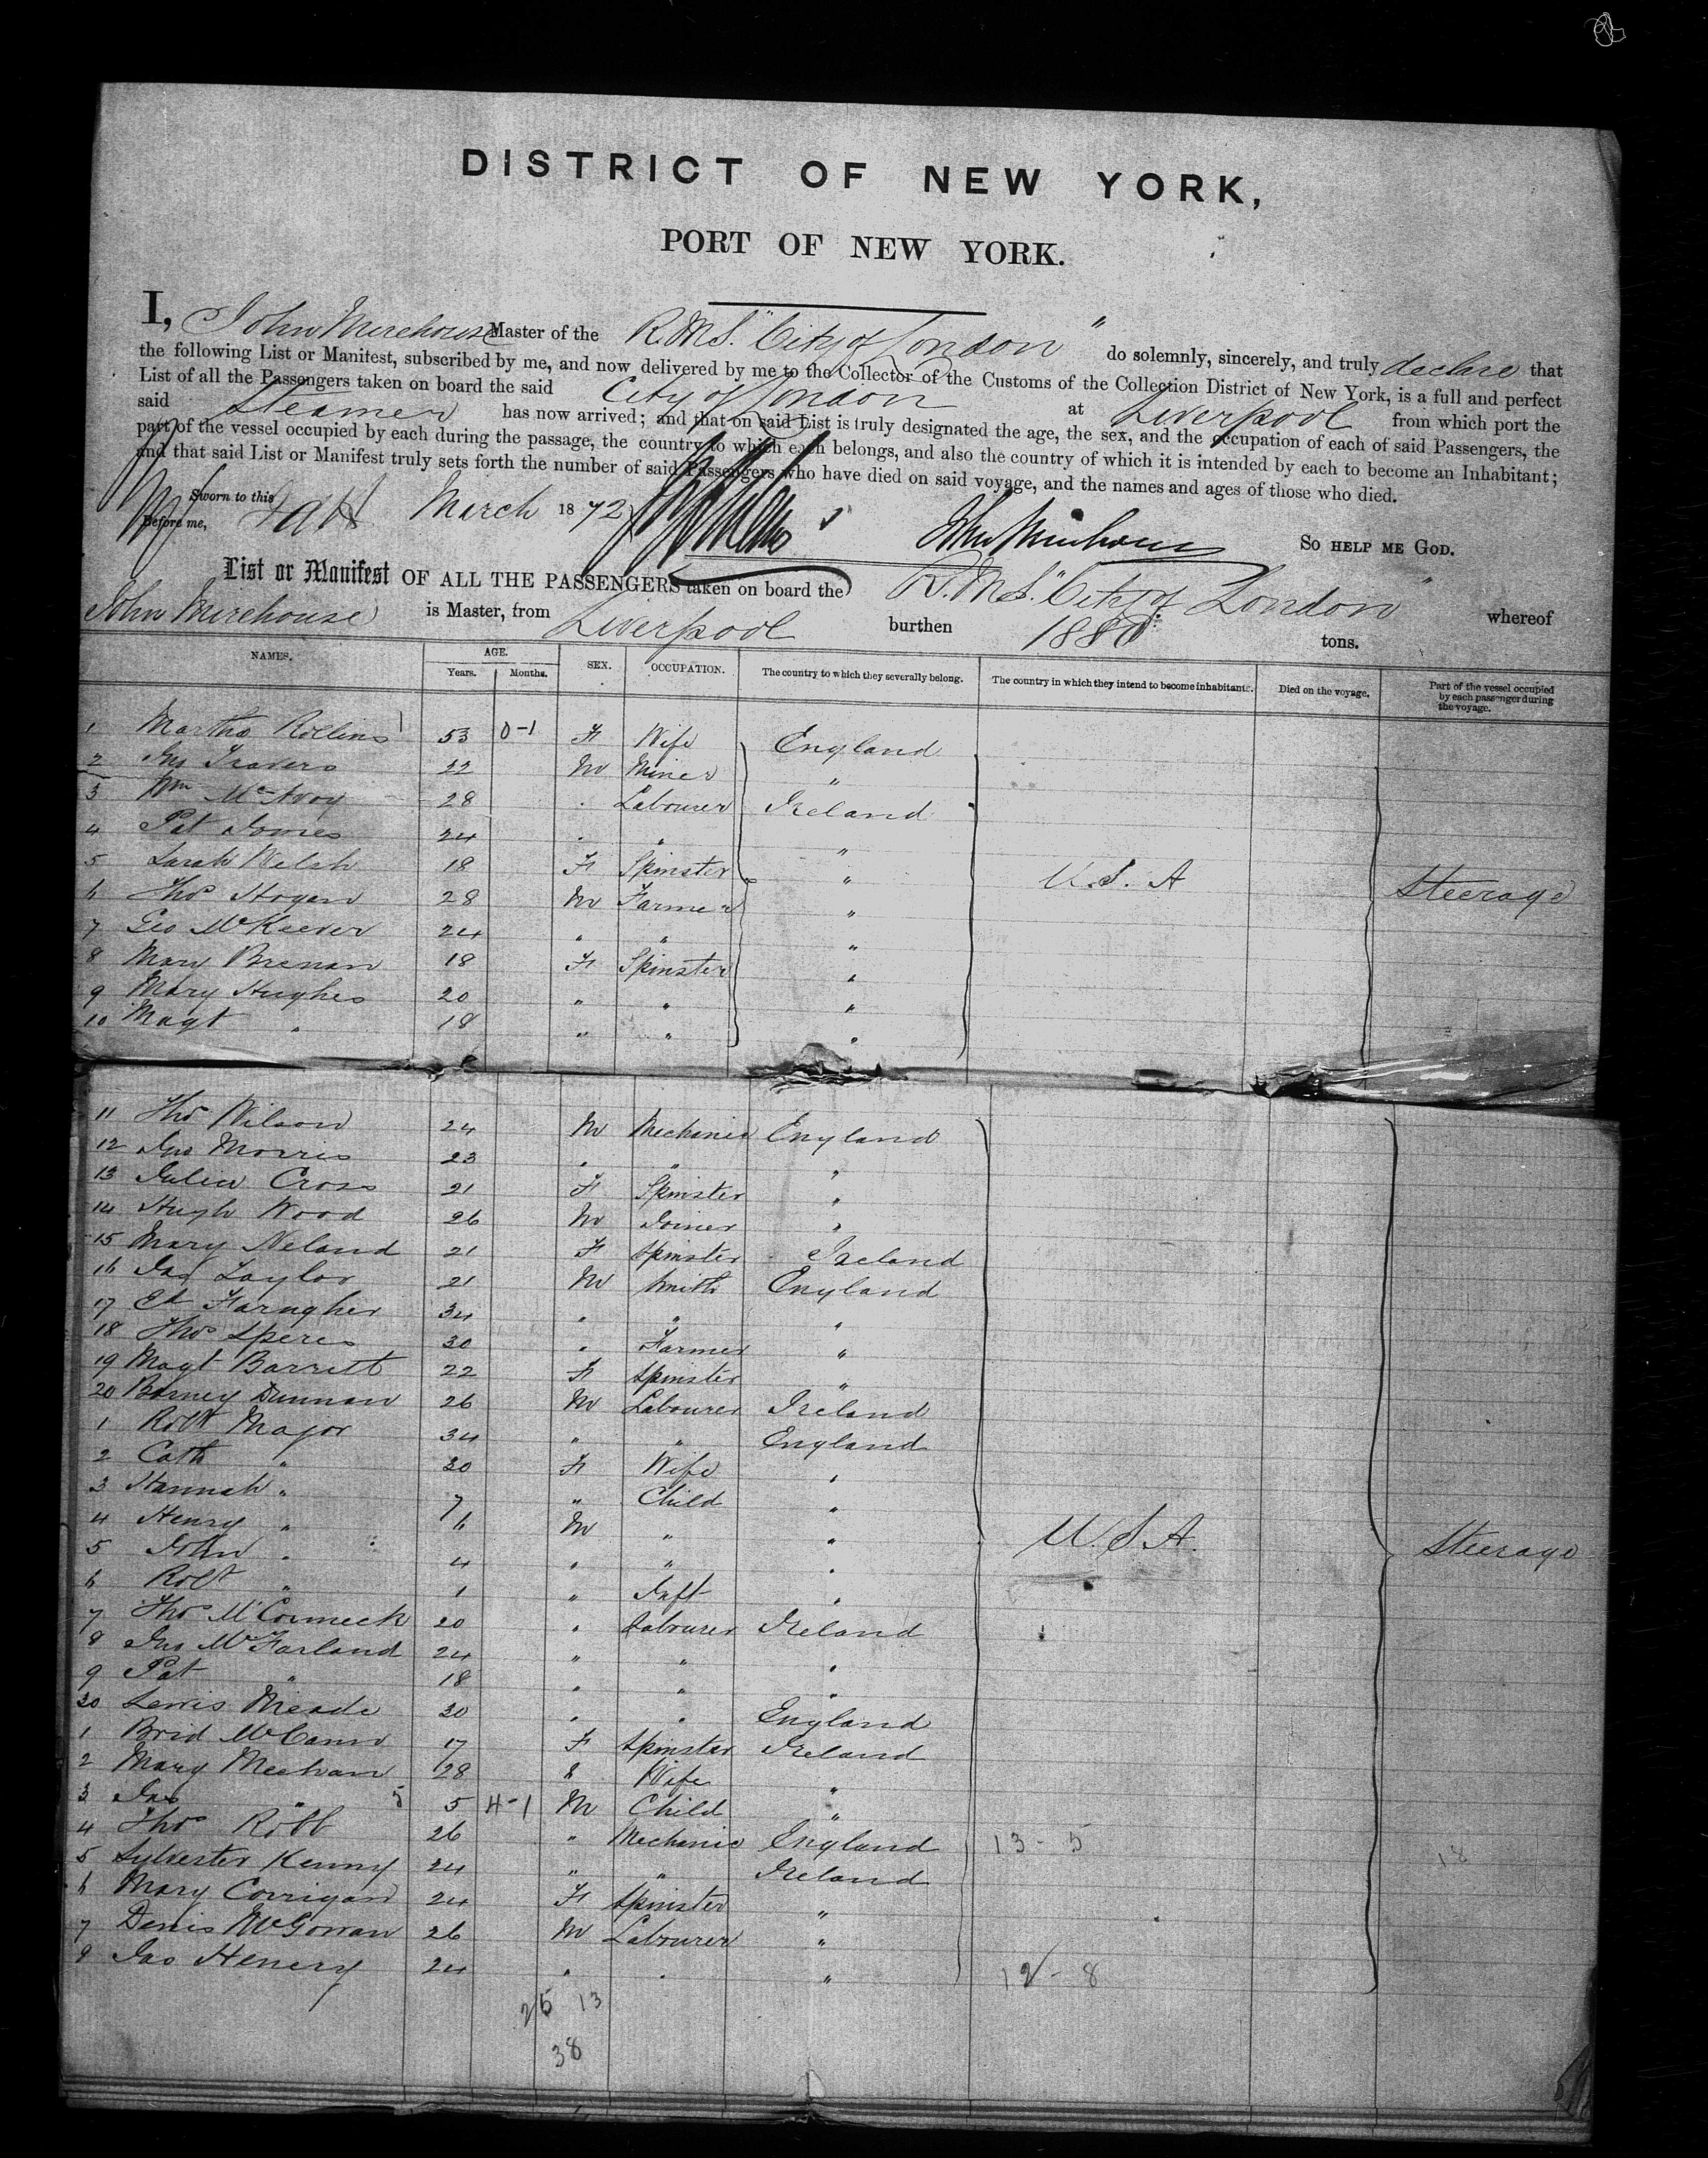 DISTRICT OF NEW YORK,
PORT OF NEW YORK.
I, John Mirehouse Master of the R.M.S. "City of London" do solemnly, sincerely, and truly declare that
the following List or Manifest, subscribed by me, and now delivered by me to the Collector of the Customs of the Collection District of New York, is a full and perfect
List of all the Passengers taken on board the said City of London at Liverpool from which port the
said Steamer has now arrived; and that on said List is truly designated the age, the sex, and the occupation of each of said Passengers, the
part of the vessel occupied by each during the passage, the country to which each belongs, and also the country of which it is intended by each to become an Inhabitant;
and that said List or Manifest truly sets forth the number of said Passengers who have died on said voyage, and the names and ages of those who died.
Sworn to this March 1872
Before me,
John Mirehouse
SO HELP ME GOD.
List or Manifest OF ALL THE PASSENGERS taken on board the R.M.S. "City of London" whereof
John Mirehouse is Master, from Liverpool burthen 1880 tons.
NAMES. AGE. Years. Months. SEX. OCCUPATION. The country to which they severally belong. The country in which they intend to become inhabitants. Died on the voyage. Part of the vessel occupied by each passenger during the voyage.
1 Martha Rollins 1 53 0-1 F Wife England
2 Jno Travers 22 M Miner "
3 Wm McAvoy 28 " Labourer Ireland
4 Pat Jones 24 " " "
5 Sarah Welsh 18 F Spinster " U.S.A Steerage
6 Thos Hogan 28 M Farmer "
7 Geo McKeever 24 " " "
8 Mary Brenan 18 F Spinster "
9 Mary Hughes 20 " " "
10 Magt " 18 " " "
11 Thos Wilson 24 M Mechanic England
12 Jno Morris 23 " " "
13 Julia Cross 21 F Spinster "
14 Hugh Wood 26 M Joiner "
15 Mary Neland 21 F Spinster Ireland
16 Jas Taylor 21 M Smith England
17 Ed Faragher 34 " " "
18 Thos Speres 30 " Farmer "
19 Magt Barrett 22 F Spinster "
20 Barney Dunnan 26 M Labourer Ireland
1 Robt Major 34 " " England
2 Cath " 30 F Wife "
3 Hannah " 7 " Child "
4 Henry " 6 M " " U.S.A. Steerage
5 John " 4 " " "
6 Robt " 1 " Inft "
7 Thos McCormeck 20 " Labourer Ireland
8 Jno McFarland 24 " " "
9 Pat " 18 " " "
30 Lewis Meade 30 " " England
1 Brid McCann 17 F Spinster Ireland
2 Mary Meehan 28 " Wife "
3 Jas " 5 5 4-1 M Child "
4 Thos Robb 26 " Mechanic England 13-5
5 Sylvester Kenny 24 " " Ireland 18
6 Mary Corrigan 24 F Spinster "
7 Denis McGowan 26 M Labourer "
8 Jas Henery 24 " " " 12-8
25 13
38